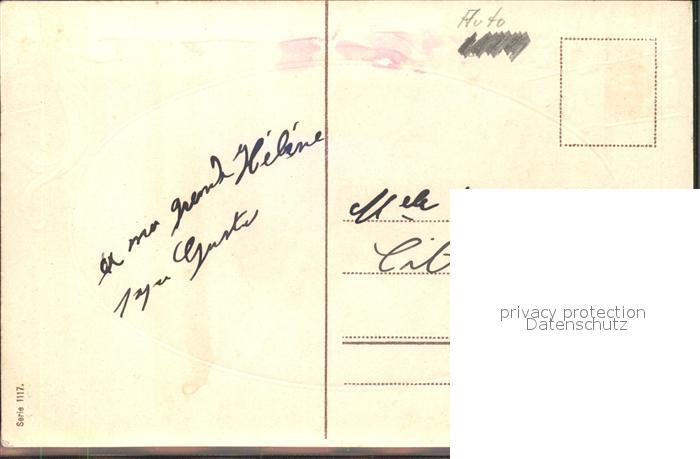 Auto
à ma grand Hélène
Gusto
Mele
Cit
privacy protection
Datenschutz
Serie 1117.